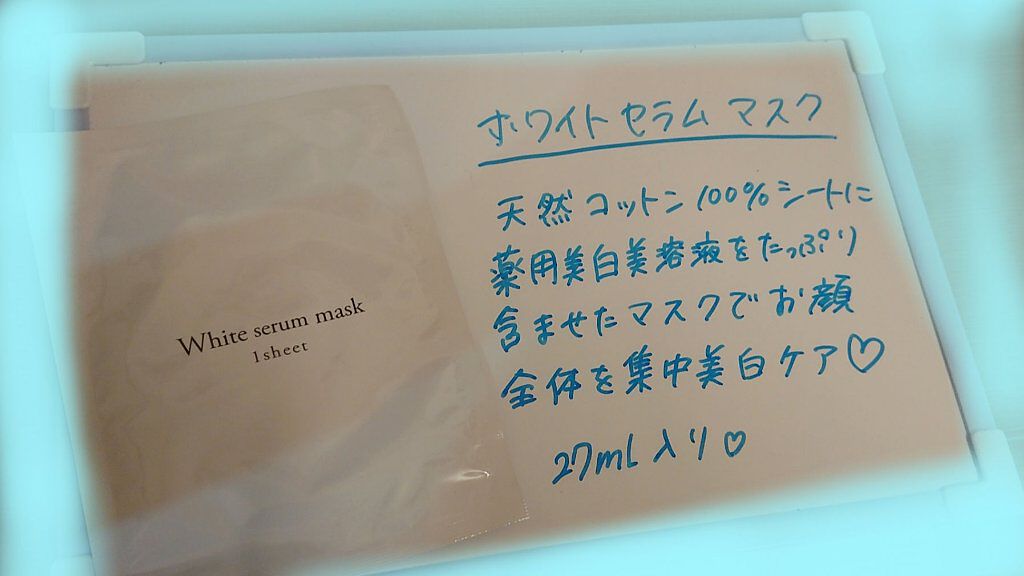 White serum mask
1 sheet
ホワイトセラムマスク
天然コットン100%シートに
薬用美白美容液をたっぷり
含ませたマスクでお顔
全体を集中美白ケア♡
27ml入り♡